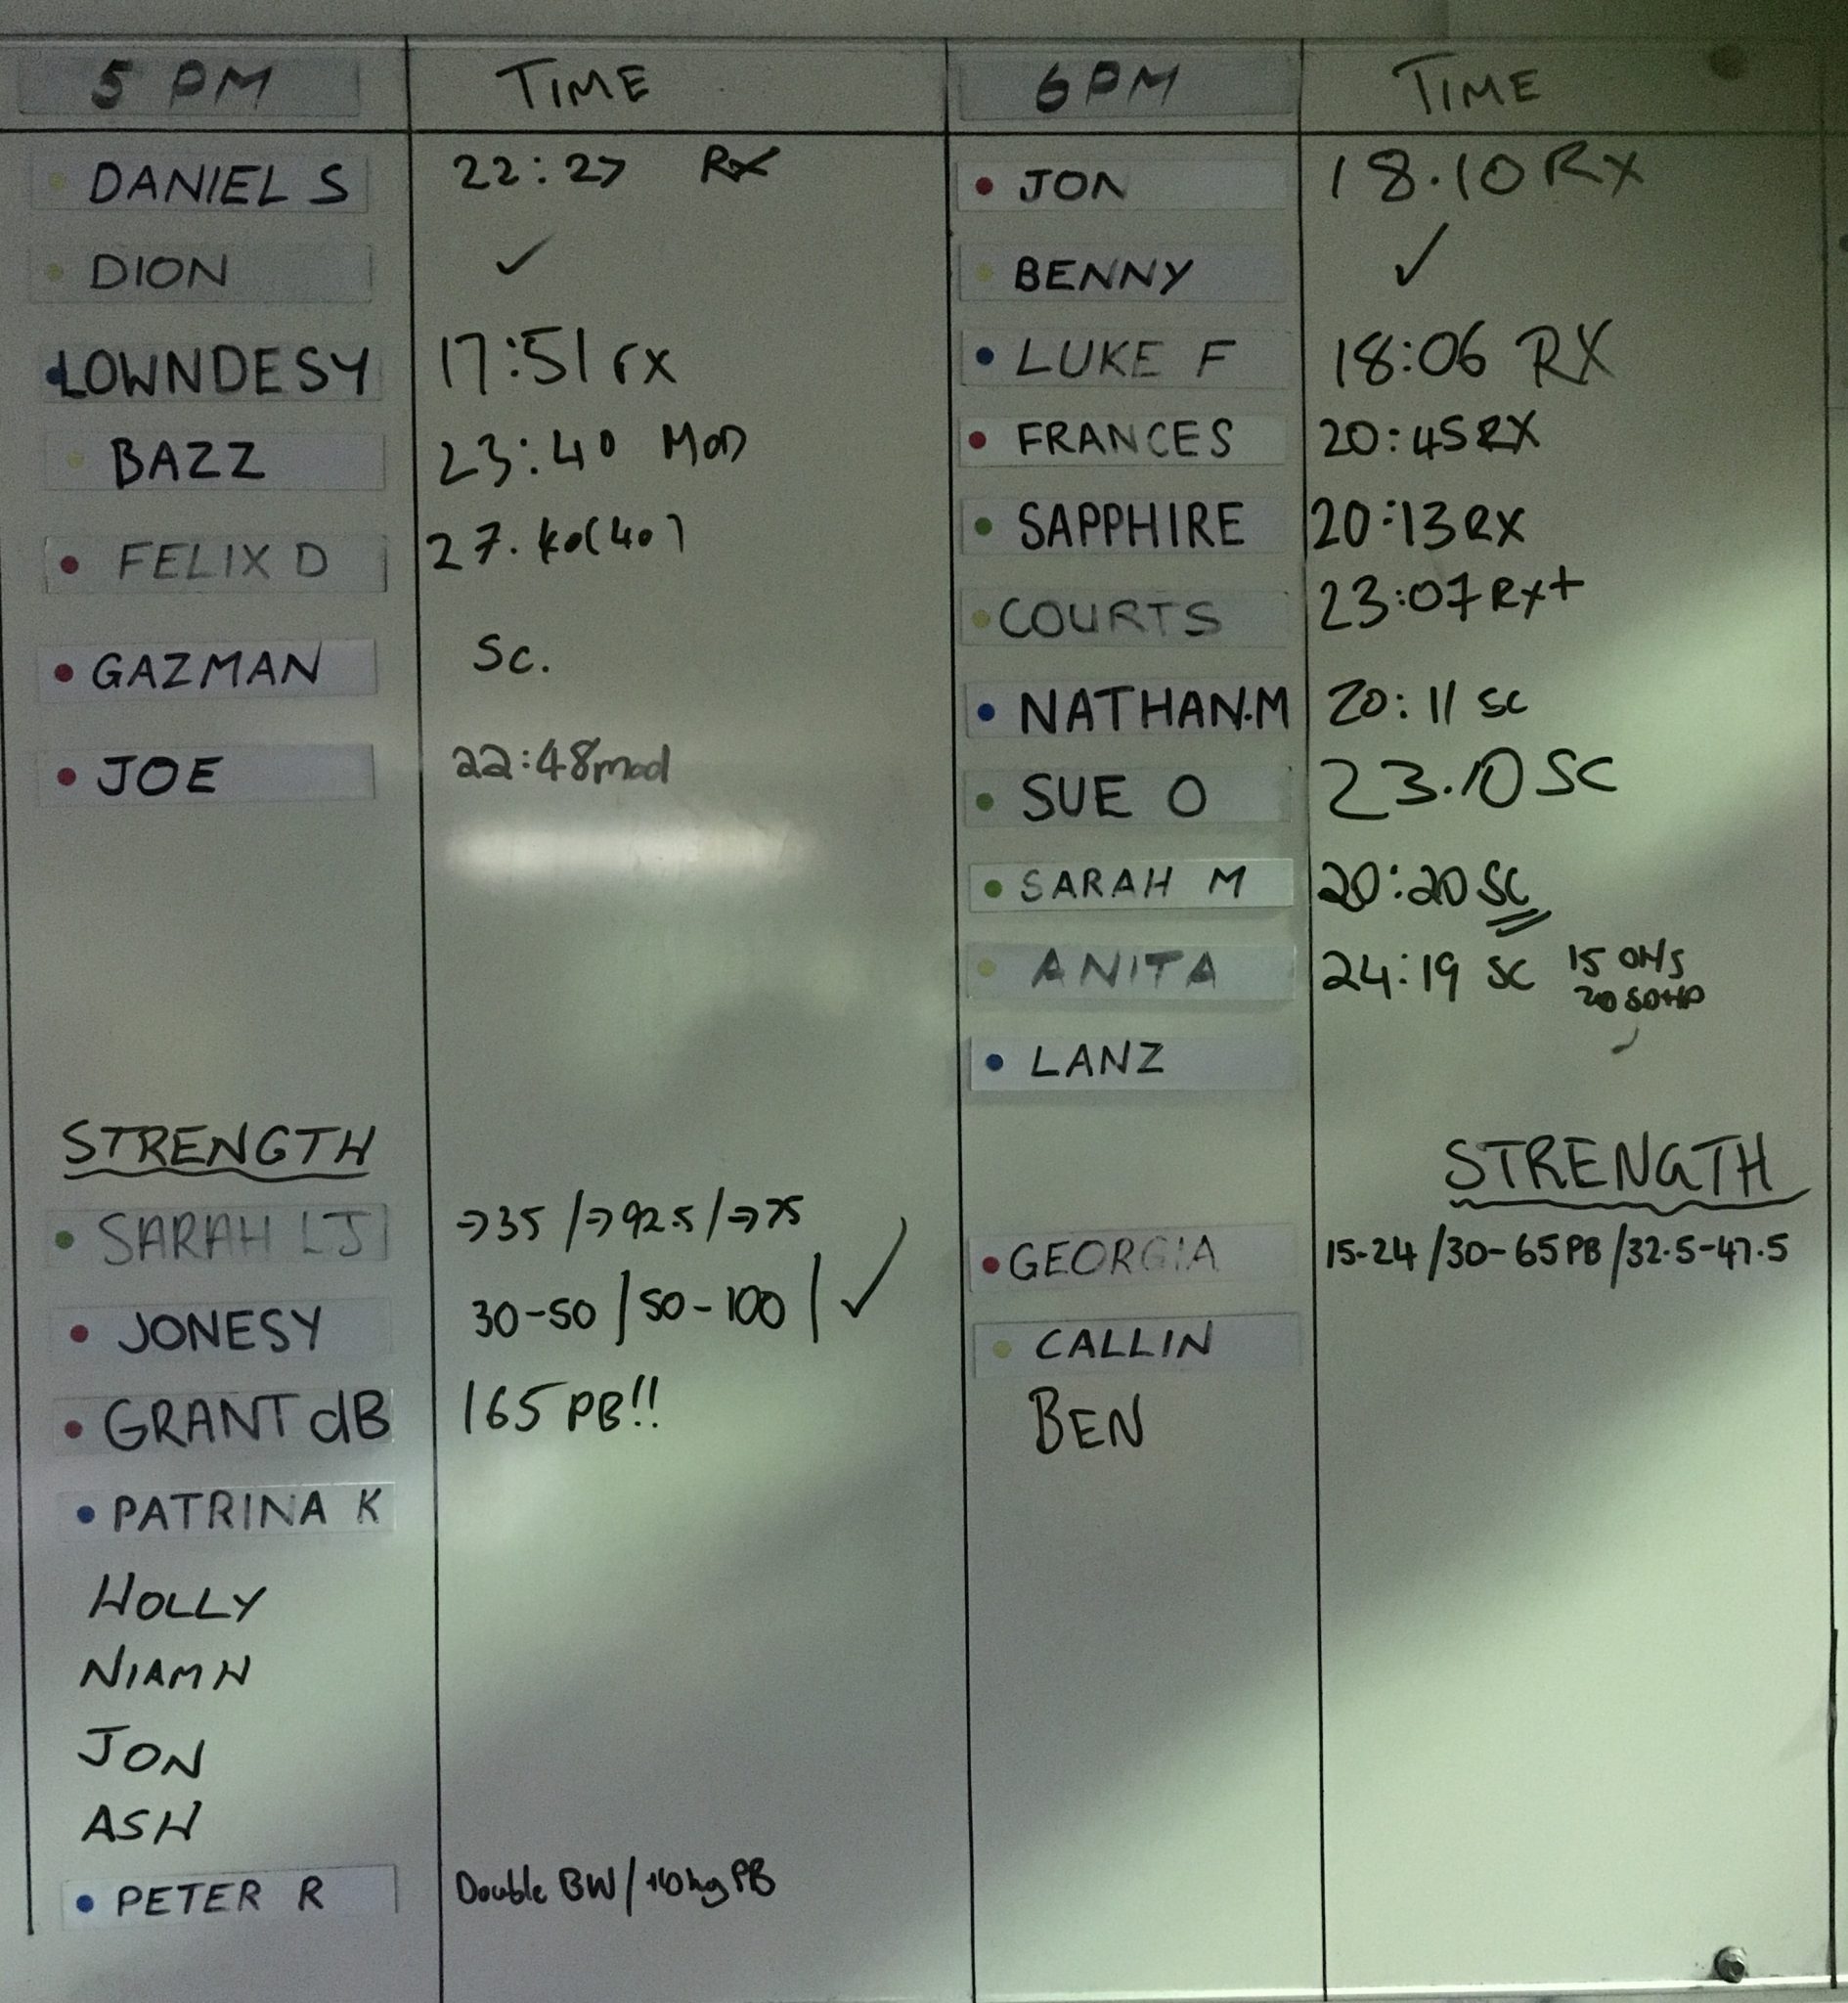 5 PM TIME 6PM TIME
DANIEL S 22:27 Rx JON 18.10 Rx
DION ✓ BENNY ✓
LOWNDESY 17:51 rx LUKE F 18:06 RX
BAZZ 23:40 MOD FRANCES 20:45 RX
FELIX D 27. (40) SAPPHIRE 20:13 RX
COURTS 23:07 Rx+
GAZMAN Sc. NATHAN.M 20:11 SC
JOE 22:48 mod SUE O 23.10 SC
SARAH M 20:20 SC
ANITA 24:19 SC 15 OHS
20
LANZ
STRENGTH STRENGTH
SARAH LJ →35 /→92.5 /→75 GEORGIA 15-24 /30-65 PB /32.5-47.5
JONESY 30-50 / 50-100 / ✓ CALLIN
GRANT dB 165 PB!! BEN
PATRINA K
HOLLY
NIAMH
JON
ASH
PETER R Double BW / PB